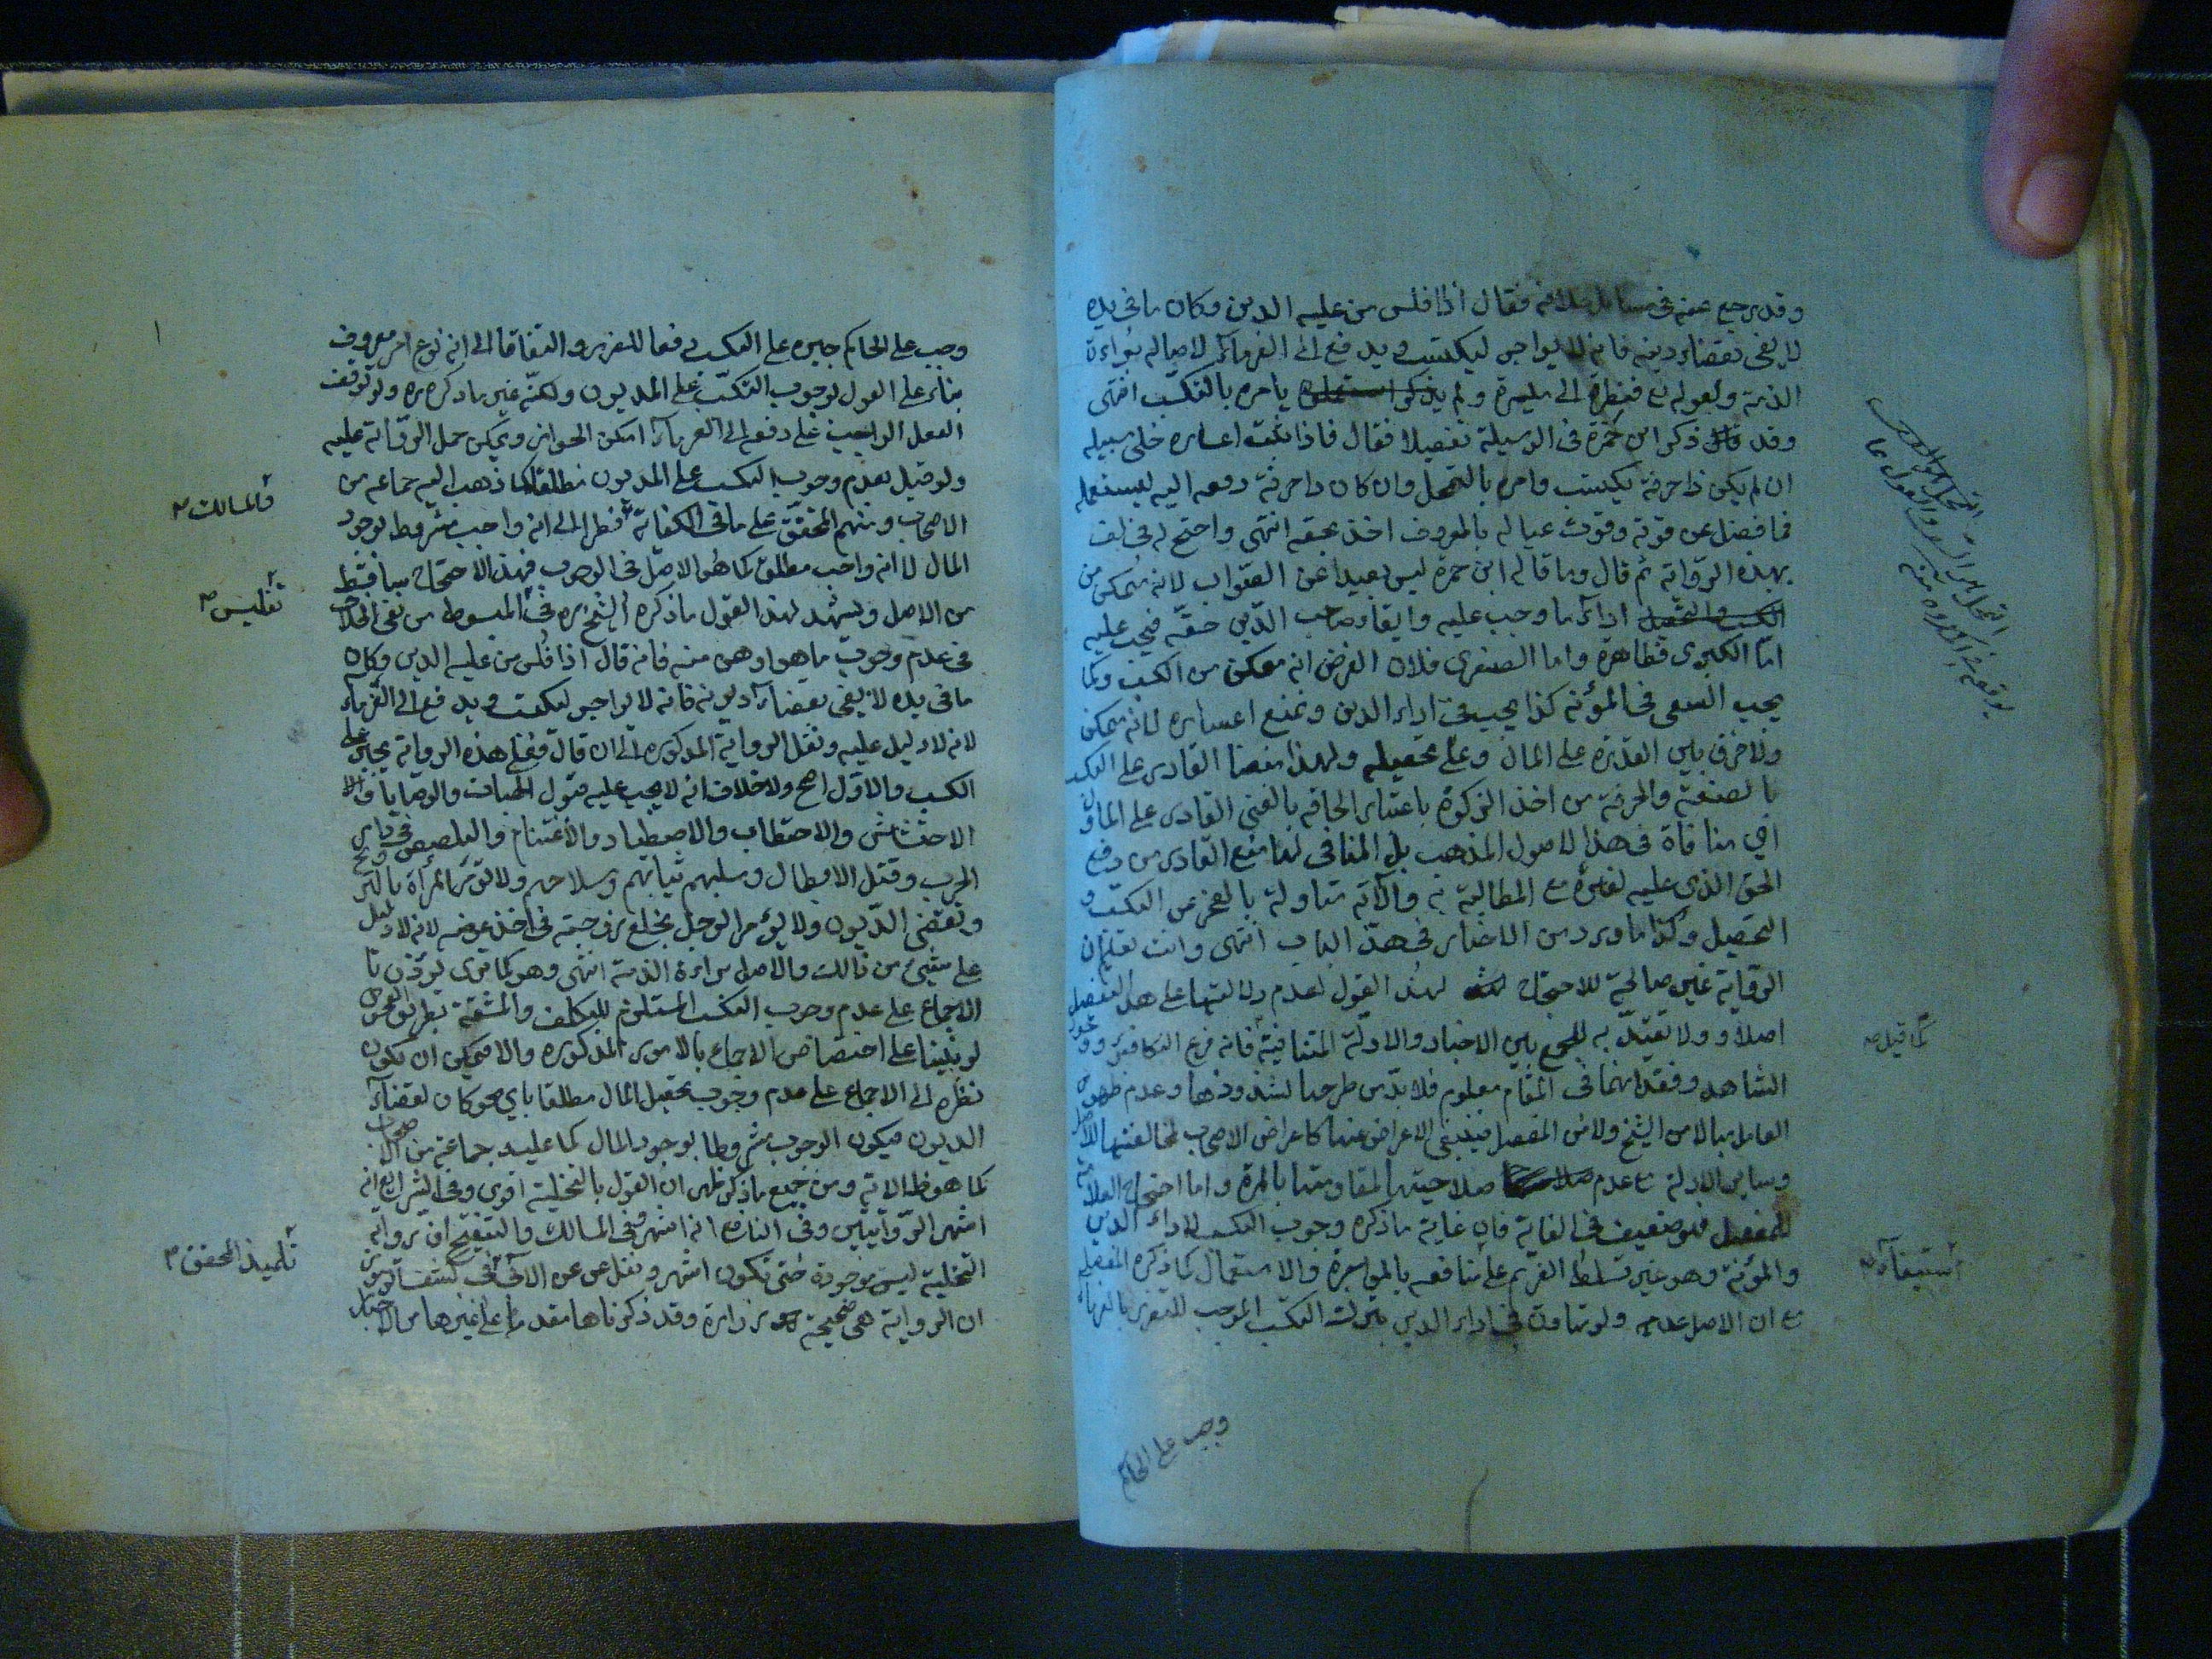 وقد رجع عنه في مسائل خلافه فقال اذا فلس من عليه الدين وكان ما في يده
لا يفي بقضاء دينه فانه لا يواجر ليكتسب ويدفع الى الغرماء للاصالة براءة
الذمة ولقوله تع فنظرة الى ميسرة ولم يذكر يامره بالتكسب انتهى
وقد ذكر ابن حمزة في الوسيلة تفصيلا فقال فاذا ثبت اعساره خلى سبيله
ان لم يكن ذا حرفة يكتسب وامره بالتمحل وان كان ذا حرفة دفعه اليه ليستعمله
فما فضل عن قوته وقوت عياله بالمعروف اخذ بحقه انتهى واحتج له في لف
بهذه الرواية ثم قال وما قاله ابن حمزة ليس بعيدا عن الصواب لانه متمكن من
اداء ما وجب عليه وايفاء صاحب الدين حقه فيجب عليه
اما الكبرى فظاهرة واما الصغرى فلان الفرض انه متمكن من الكسب وكما
يجب السعى في المؤنة كذا يجب في اداء الدين ونمنع اعساره لانه متمكن
ولا فرق بين القدرة على المال وعلى تحصيله ولهذا منعنا القادر على التكسب
بالصنعة والحرفة من اخذ الزكوة باعتبار الحاقه بالغنى القادر على المال
اي منافاة في هذا لاصول المذهب بل المنافي لها منع القادر من دفع
الحق الذي عليه لغيره مع المطالبة به والآية متاولة بالعجز عن التكسب و
التحصيل وكذا ما ورد من الاخبار في هذا الباب انتهى وانت تعلم ان
الرواية غير صالحة للاحتجاج لهذا القول لعدم دلالتها على هذا التفصيل
اصلا ولا تقيد به للجمع بين الاخبار والادلة المتنافية فانه فرع التكافؤ ووجود
الشاهد وفقدانهما في المقام معلوم فلا بد من طرحها لشذوذها وعدم ظهور
العامل بها الا من الشيخ ولا من المفصل فينبغي الاعراض عنها كاعراض الاصحاب لمخالفتها للاصل
وساير الادلة مع عدم صلاحيتها لمقاومتها بالمرة واما احتجاج العلامة
للمفصل فهو ضعيف في الغاية فان غاية ما ذكره وجوب التكسب لاداء الدين
والمؤنة وهو غير تسلط الغريم على منافعه بالمواجرة والاستعمال كما ذكره المفصل
مع ان الاصل عدمه ولو تهاون في اداء الدين بترك التكسب الموجب للتضرر بالغرماء
كما قيل صح
وجب على الحاكم
وجب على الحاكم جبره على التكسب دفعا للضرر والتفاتا الى انه نوع امر بمعروف
بناء على القول بوجوب التكسب على المديون ولكنه غير ما ذكره ره ولو توقف
الفعل الواجب على دفعه الى الغرماء امكن الجواز ويمكن حمل الرواية عليه
ولو قيل بعدم وجوب التكسب على المديون مطلقا كما ذهب اليه جماعه من
الاصحاب ومنهم المحقق على ما في الكفاية فنظرا الى انه واجب مشروط بوجود
المال لا انه واجب مطلق كما هو الاصل في الوجوب فهذا الاحتجاج ساقط
من الاصل ويشهد لهذا القول ما ذكره الشيخ ره في المبسوط من نفي الخلاف
في عدم وجوب ما هو اوهن منه فانه قال اذا فلس من عليه الدين وكان
ما في يده لا يفي بقضاء ديونه فانه لا يواجر ليكتسب ويدفع الى الغرماء
لانه لا دليل عليه ونقل الرواية المذكورة الى ان قال فعلى هذه الرواية يجبر على
الكسب والاول اصح ولا خلاف انه لا يجب عليه قبول الهبات والوصايا والا
الاحتشاش والاحتطاب والاصطياد والاغتنام والتلصص في دار
الحرب وقتل الابطال وسلبهم ثيابهم وسلاحهم ولا تؤمر المرأة بالتزويج
وتقضى الديون ولا يؤمر الرجل بخلع زوجته في اخذ عوضه لانه لا دليل
على شيئ من ذالك والاصل براءة الذمة انتهى وهو كما ترى يوذن با
الاجماع على عدم وجوب التكسب المستلزم للتكلف والمشقة بطريق
لو بنينا على اختصاص الاجماع بالامور المذكوره والا فيمكن ان يكون
نظره الى الاجماع على عدم وجوب تحصيل المال مطلقا باي نحو كان لقضاء
الديون فيكون الوجوب مشروطا بوجود المال كما عليه جماعة من الاصحاب
كما هو ظ الاية ومن جميع ما ذكر ظهر ان القول بالتخلية اقوى وفي الشرايع انه
اشهر الروايتين وفي النافع انه اشهر وفي المسالك والتنقيح ان رواية
التخلية ليس موجودة حتى تكون اشهر ونقل عن الآبي في كشف الرموز
ان الرواية هي صحيحة زرارة وقد ذكرناها مقدما على غيرها من الاخبار
والمسالك م
تفليس م
تلميذ المحقق م